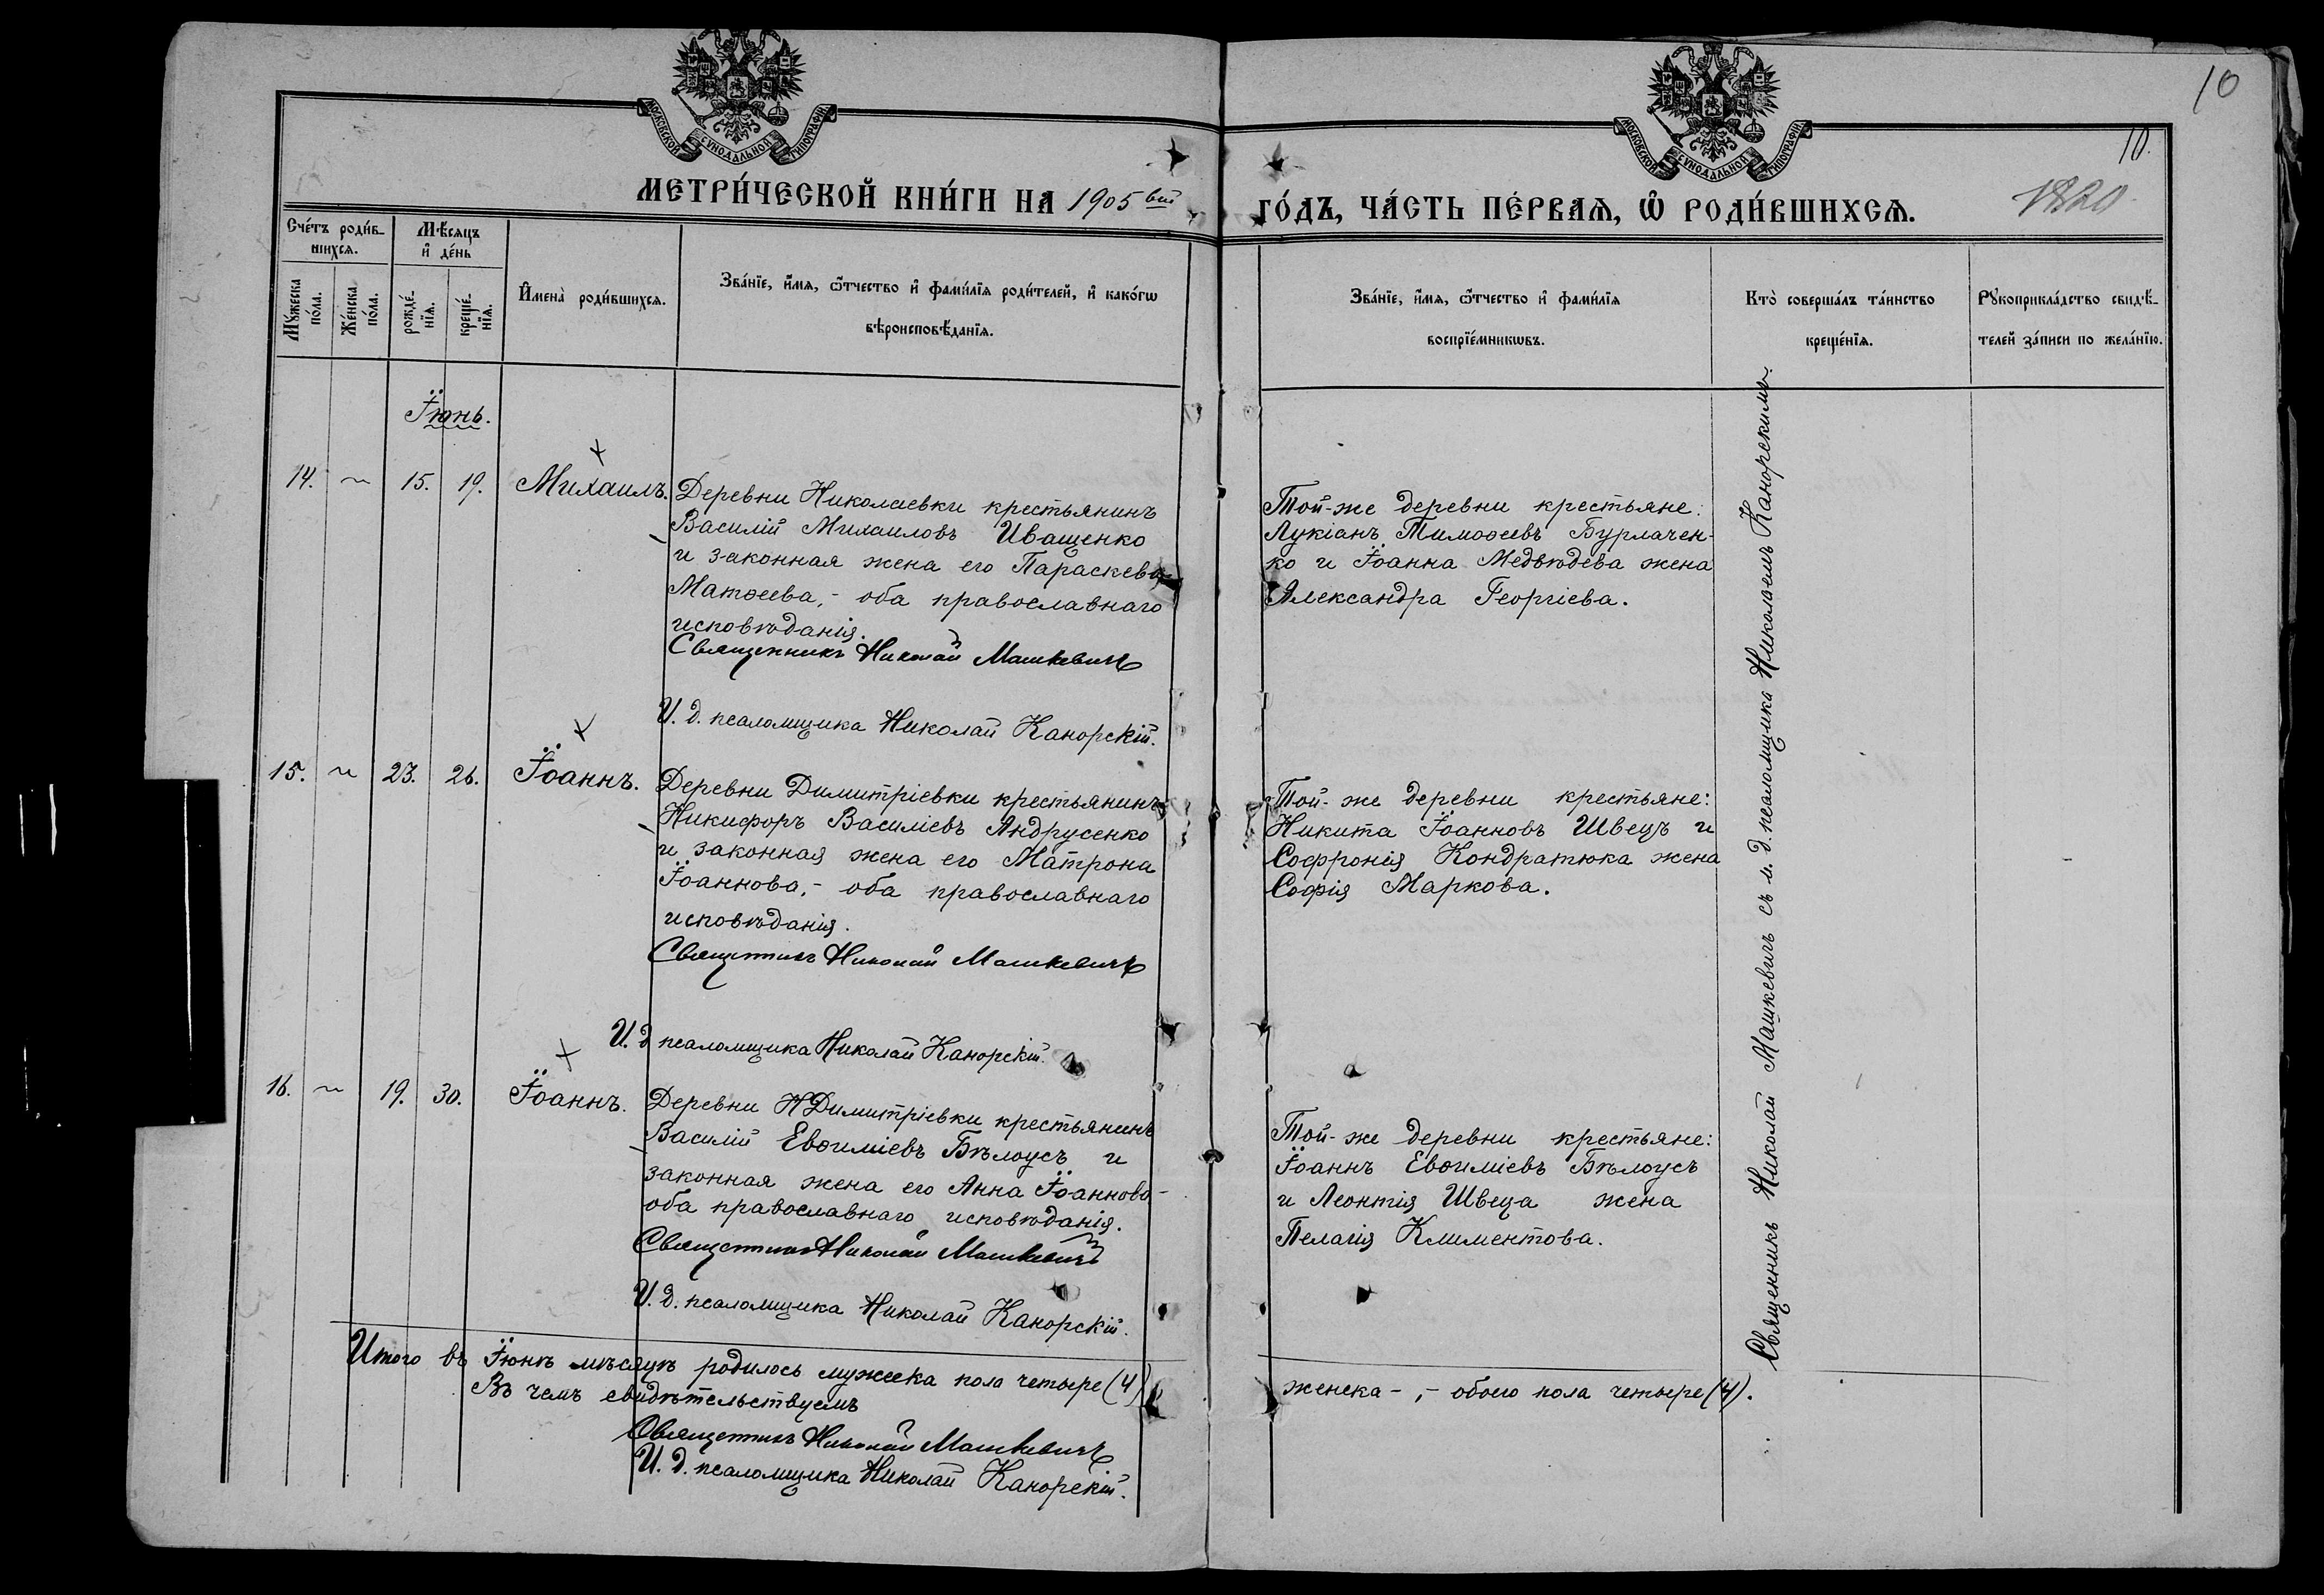 10
МОСКОВСКОЙ СѴНОДАЛЬНОЙ ТИПОГРАФІИ
МОСКОВСКОЙ СѴНОДАЛЬНОЙ ТИПОГРАФІИ
10.
МЕТРИ́ЧЕСКОЙ КНИ́ГИ НА 1905вый
ГО́ДЪ, ЧА́СТЬ ПЕ́РВАѦ, Ѡ҆ РОДИ́ВШИХСѦ.
1820
Сче́тъ роди́в-
шихсѧ.
Мѣ́сѧцъ
и҆ де́нь
Мꙋ́жеска
по́ла.
Же́нска
по́ла.
рожде́-
нїѧ.
креще́-
нїѧ.
И҆мена̀ роди́вшихсѧ.
Зва́нїе, и҆́мѧ, ѻ҆́тчество и҆ фами́лїѧ роди́телей, и҆ како́гѡ
вѣроисповѣ́данїѧ.
Зва́нїе, и҆́мѧ, ѻ҆́тчество и҆ фами́лїѧ
воспрїе́мникѡвъ.
Кто̀ соверша́лъ та́инство
креще́нїѧ.
Рꙋкоприкла́дство свидѣ́-
телей за́писи по жела́нїю.
Їюнь.
14. ~ 15. 19. Михаилъ.
Деревни Николаевки крестьянинъ
Василій Михаиловъ Иващенко
и законная жена его Параскева
Матѳеева,- оба православнаго
исповѣданія.
Священникъ Николай Машкевичъ
И. д. псаломщика Николай Канорскій.
Той-же деревни крестьяне:
Лукіанъ Тимоѳеевъ Бурлачен-
ко и Їоанна Медвѣдева жена
Александра Георгіева.
15. ~ 23. 26. Їоаннъ.
Деревни Димитріевки крестьянинъ
Никифоръ Василіевъ Андрусенко
и законная жена его Матрона
Їоаннова,- оба православнаго
исповѣданія.
Священникъ Николай Машкевичъ
И. д. псаломщика Николай Канорскій.
Той-же деревни крестьяне:
Никита Їоанновъ Швецъ и
Софронія Кондратюка жена
Софія Маркова.
16. ~ 19. 30. Їоаннъ.
Деревни Н Димитріевки крестьянинъ
Василій Евѳиміевъ Бѣлоусъ и
законная жена его Анна Їоаннова-
оба православнаго исповѣданія.
Священникъ Николай Машкевичъ
И. д. псаломщика Николай Канорскій.
Той-же деревни крестьяне:
Їоаннъ Евѳиміевъ Бѣлоусъ
и Леонтія Швеца жена
Пелагія Климентова.
Священникъ Николай Машкевичъ съ и. д. псаломщика Николаемъ Канорскимъ.
Итого въ Їюнѣ мѣсяцѣ родилось мужеска пола четыре (4)
женска -,- обоего пола четыре (4).
Въ чемъ свидѣтельствуемъ
Священникъ Николай Машкевичъ
И. д. псаломщика Николай Канорскій.